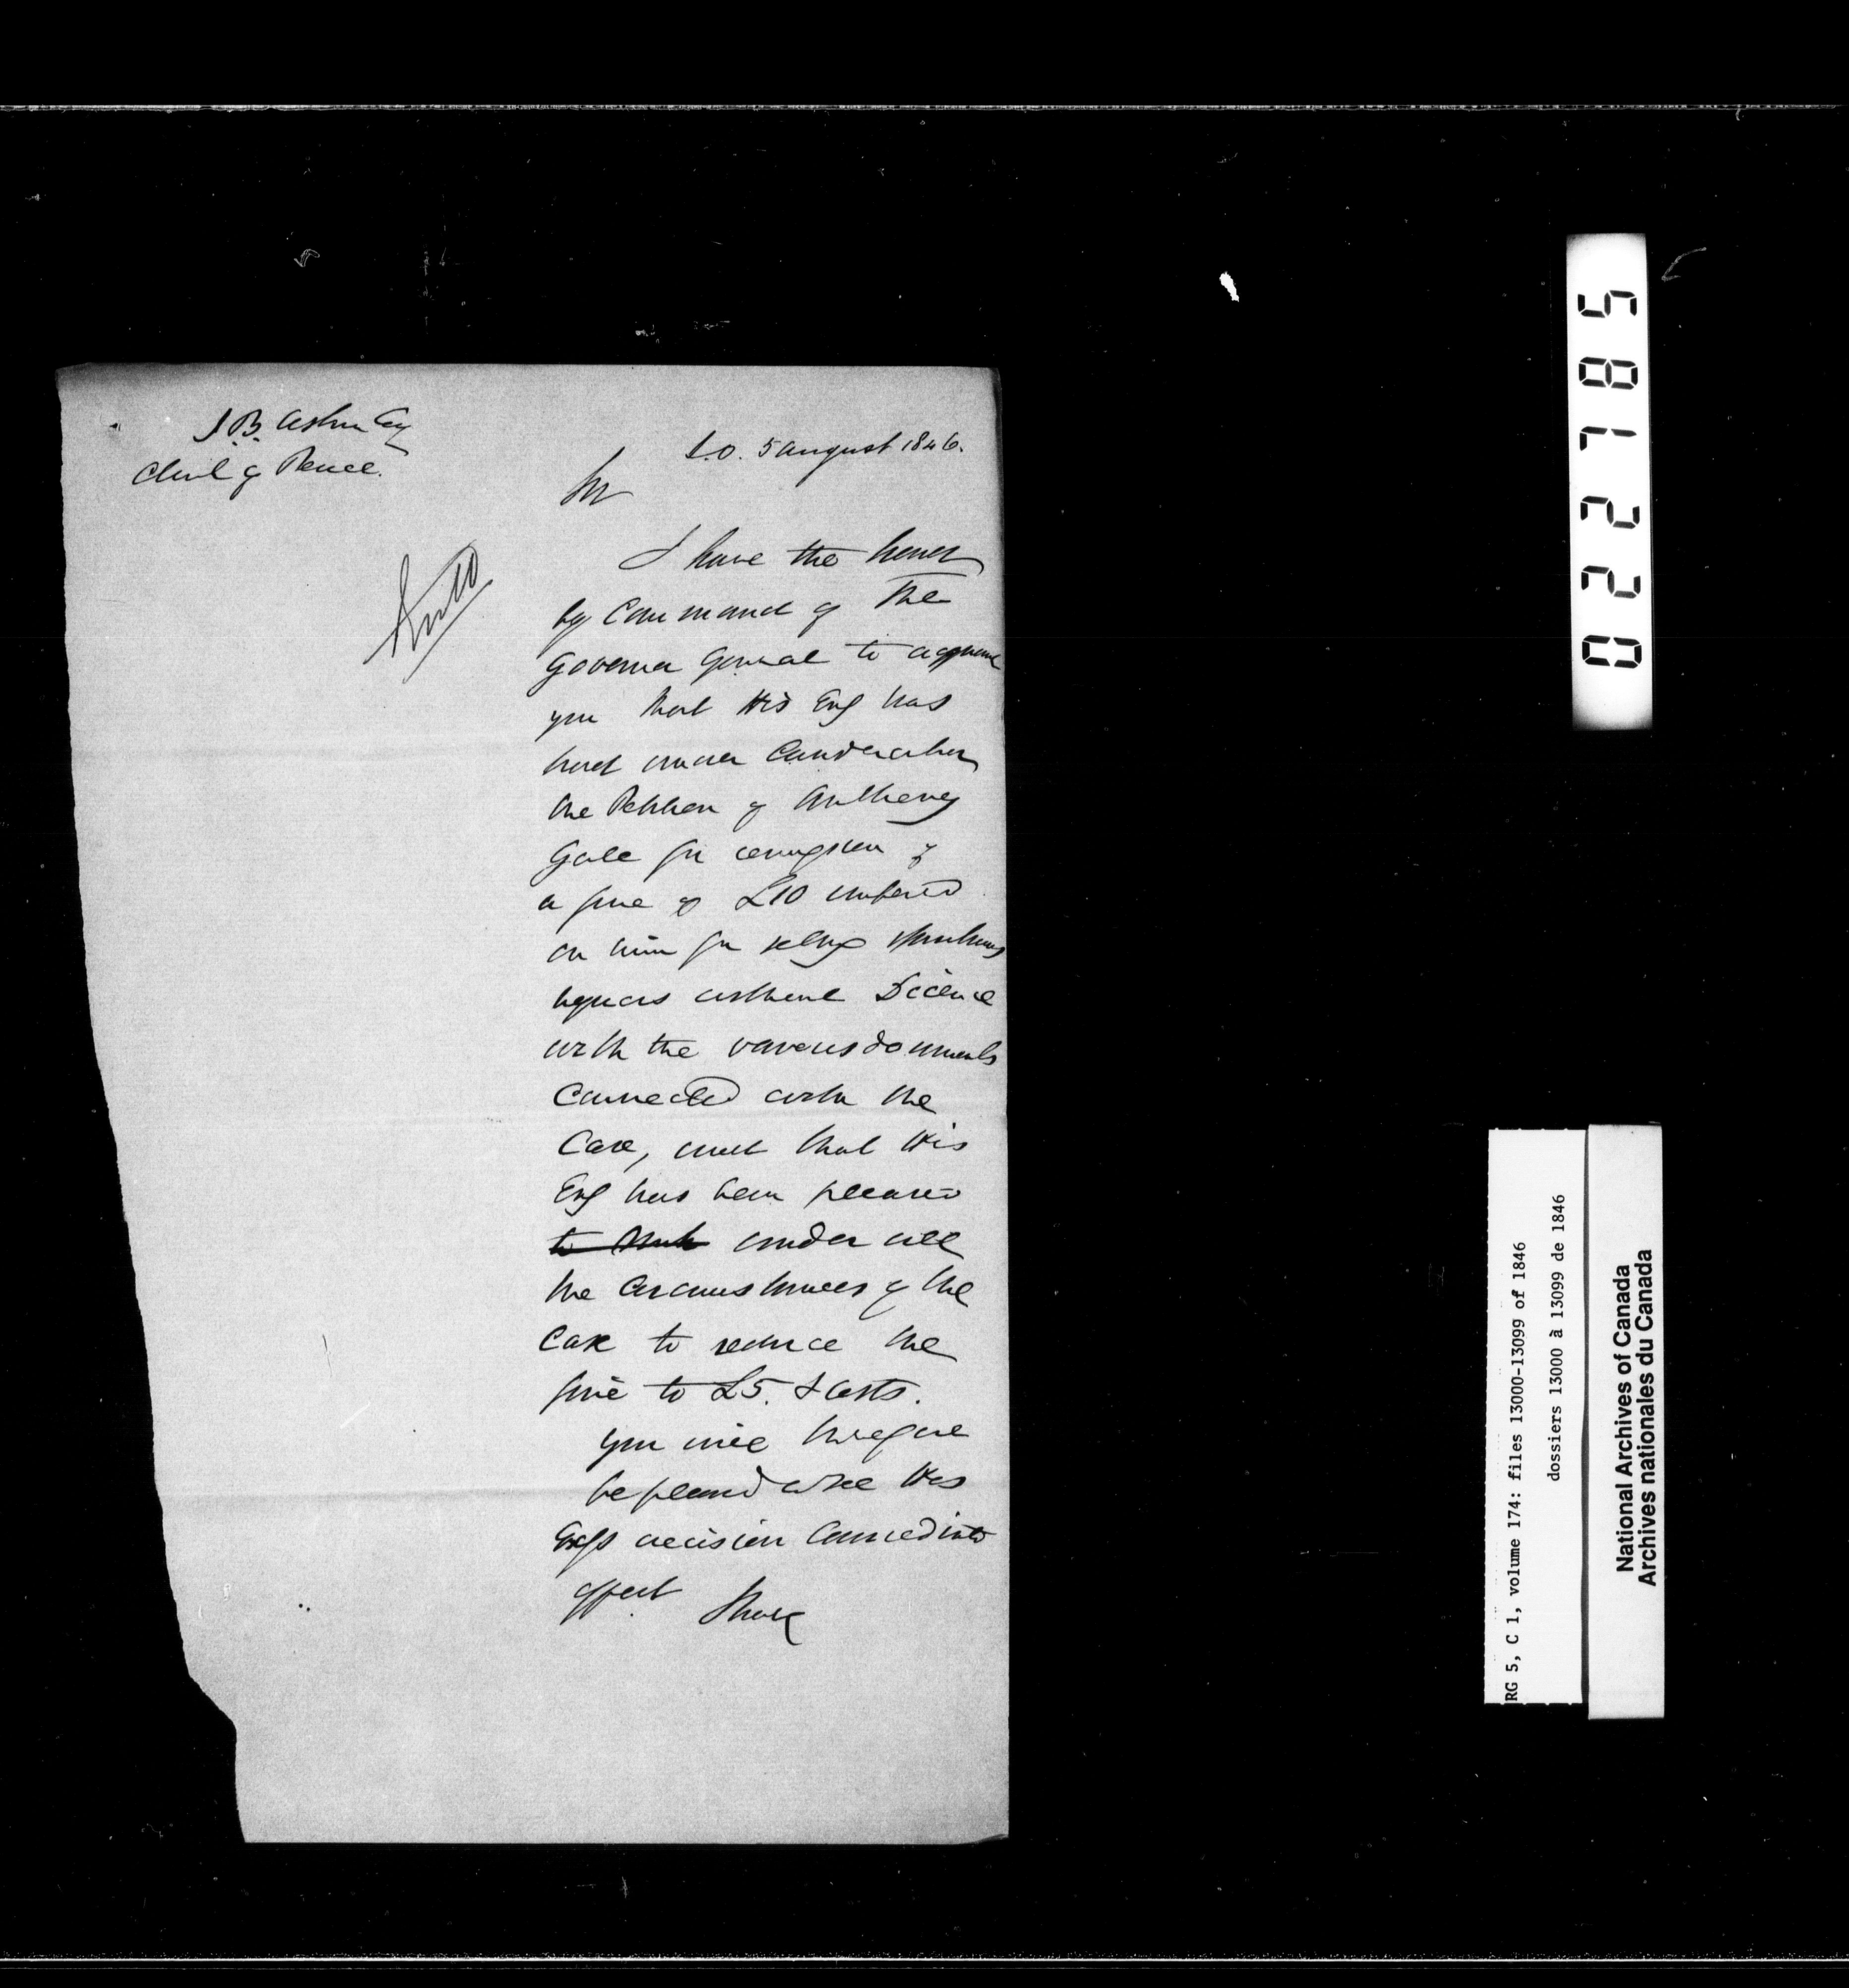 J.B. Askin Esq
Clerk of Peace.
S.O. 5 August 1846.
Sir
I have the honor
by Command of The
Governor General to acquaint
you that His Exc̃y has
had under Consideration
the Petition of Anthony
Gale for remission of
a fine of £10 imposed
on him for selling Spirituous
liquors without License
with the various documents
Connected with the
Case, and that His
Exc̃y has been pleased
to under all
the Circumstances of the
Case to reduce the
fine to £5. & Costs.
You will therefore
be pleased to see His
Excys decision Carried into
effect
022785
RG 5, C 1, volume 174: files 13000-13099 of 1846
dossiers 13000 à 13099 de 1846
National Archives of Canada
Archives nationales du Canada